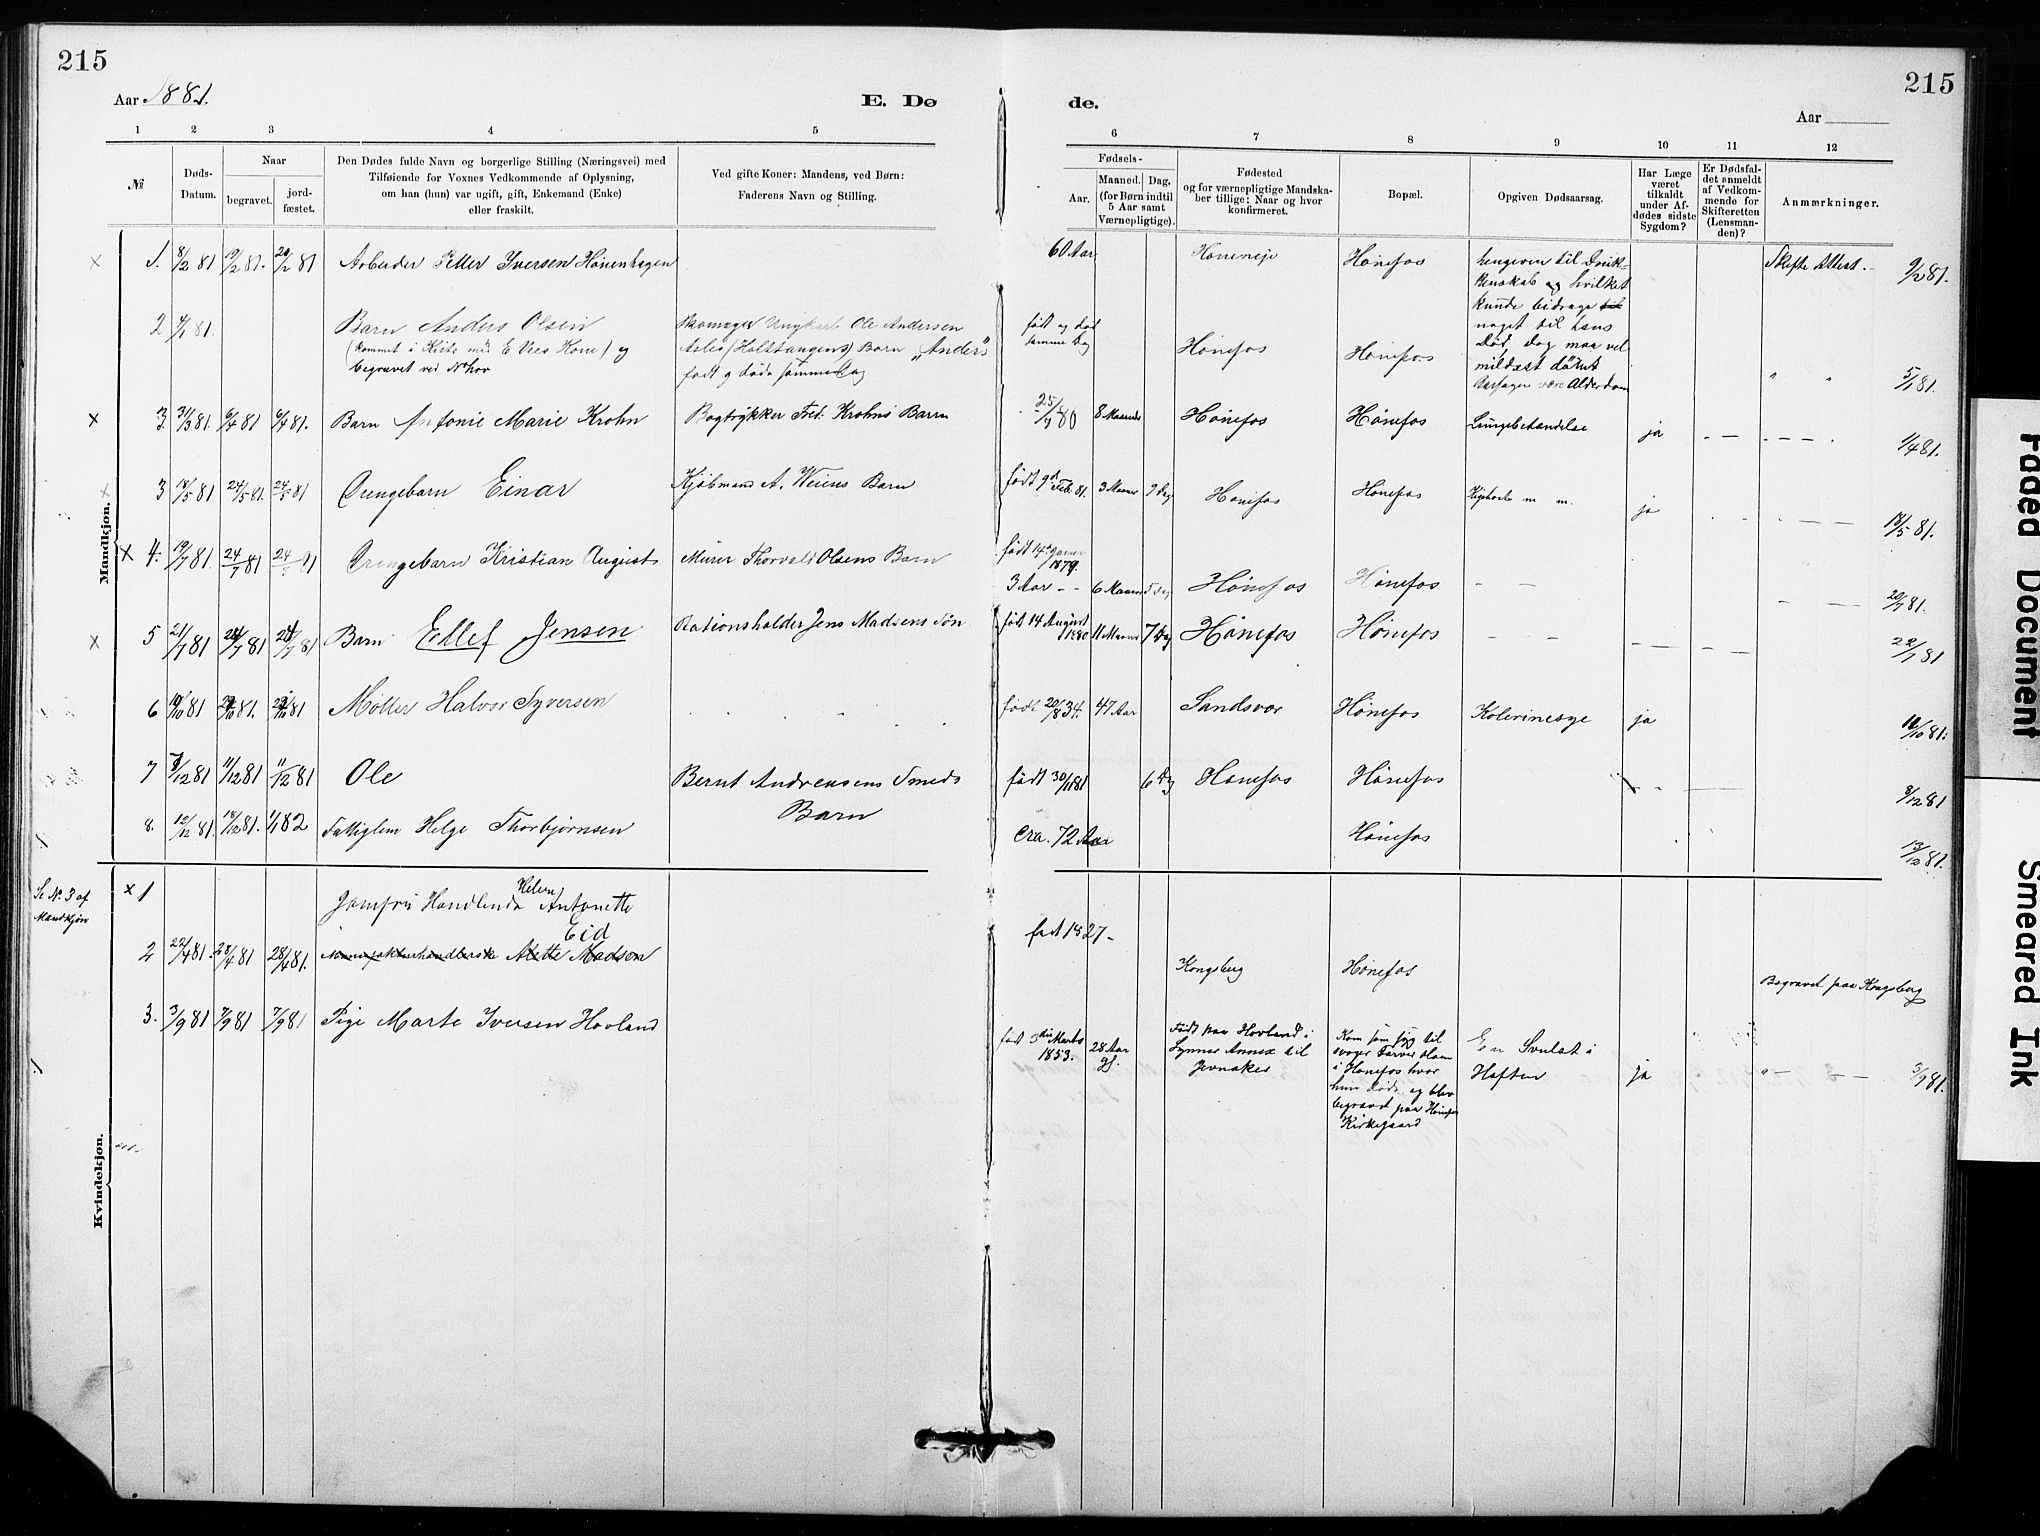 215
215
Aar 1881.
E. Dø
de.
Aar
1 2 3 4 5 6 7 8 9 10 11 12
№
Døds-
Datum.
Naar
begravet.
jord-
fæstet.
Den Dødes fulde Navn og borgerlige Stilling (Næringsvei) med
Tilføiende for Voxnes Vedkommende af Oplysning,
om han (hun) var ugift, gift, Enkemand (Enke)
eller fraskilt.
Ved gifte Koner: Mandens, ved Børn:
Faderens Navn og Stilling.
Fødsels-
Aar.
Maaned. Dag.
(for Børn indtil
5 Aar samt
Værnepligtige).
Fødested
og for værnepligtige Mandska-
ber tillige: Naar og hvor
konfirmeret.
Bopæl.
Opgiven Dødsaarsag.
Har Læge
været
tilkaldt
under Af-
dødes sidste
Sygdom?
Er Dødsfal-
det anmeldt
af Vedkom-
mende for
Skifteretten
(Lensman-
den)?
Anmærkninger.
Mandkjøn.
× 1. 8/2 81 19/2 81. 20/2 81 Arbeider Petter Iversen Hønenhagen 60 Aar Hønefos
hengiven til Drik-
kenskab og hvilket
kunde bidrage til
noget til hans
Død, dog maa vel
mildest dømt
Aarsagen være Alderdom
Skifte Attest. 9/2 81.
2 4/1 81. Barn Anders Olsen
(kommet i Kiste med E Vies Kone) og
begravet ved Nhov
Skomager Ungkarl Ole Andersen
(Holstangens) Barn "Anders"
født g døde samme Dag
født og død
samme Dag
Hønefos Hønefos 5/1 81.
× 3. 31/3 81. 6/4 81 6/4 81. Barn Antonie Marie Krohn Bogtrykker Fred. Krohns Barn 25/7 80 8 Maaneder Hønefos Hønefos Lungebetændelse ja 1/4 81.
× 3 18/5 81 24/5 81. 24/5 81 Drengebarn Einar Kjøbmand A. Weiens Barn født 9d Feb. 81. 3 Maaner 9 Dag Hønefos Hønefos Kighoste m m. ja 18/5 81.
× 4. 19/7 81. 24/7 81 24/7 81 Drengebarn Kristian August Murer Thorvald Olsens Barn født 14d Januar
1879.
3 Aar - - 6 Maaner 5 Dag Hønefos Hønefos 20/7 81.
× 5 21/7 81 24/7 81 24/7 81 Barn Ellef Jensen Stationsholder Jens Madsens Søn født 14 August
1880 11 Maaned 7 Dag Hønefos Hønefos 22/7 81
6 10/10 81 81. 81 Møller Halvor Syversen født 20/8 34. 47 Aar Sandsvær Hønefos Kolerinesyge ja /10 81.
7 /12 81 11/12 81 11/12 81 Ole Bernt Andreasens Smeds
Barn
født 30/11 81 6 Dg Hønefos Hønefos 8/12 81
8. 12/12 81. 18/12 81. 1/1 82 Fattiglem Helge Thorbjørnsen Cra. 72 Aar Hønefos 13/12 81.
Kvindekjøn.
Se № 3 af
Mandkjøn
× 1
Jomfru Handlende Helene Antonette
Eid
2 22/4 81. 28/4 81 28/4 81. Alette Madsen født 1827- Kongsberg Hønefos Begravet paa Kongsberg
3. 3/9 81 7/9 81 7/9 81 Pige Marte Iversen Hovland født 3die Marts
1853. 28 Aar
gl.
Født paa Hovland i
Lynner Annex til
Jevnaker
Kom som syg til
svoger Farver Olsen
i Hønefos hvor
hun døde og blev
begravet paa Hønefos
Kirkegaard
En Svulst i
Hoften
ja 3/9 81.
Faded Document
Smeared Ink